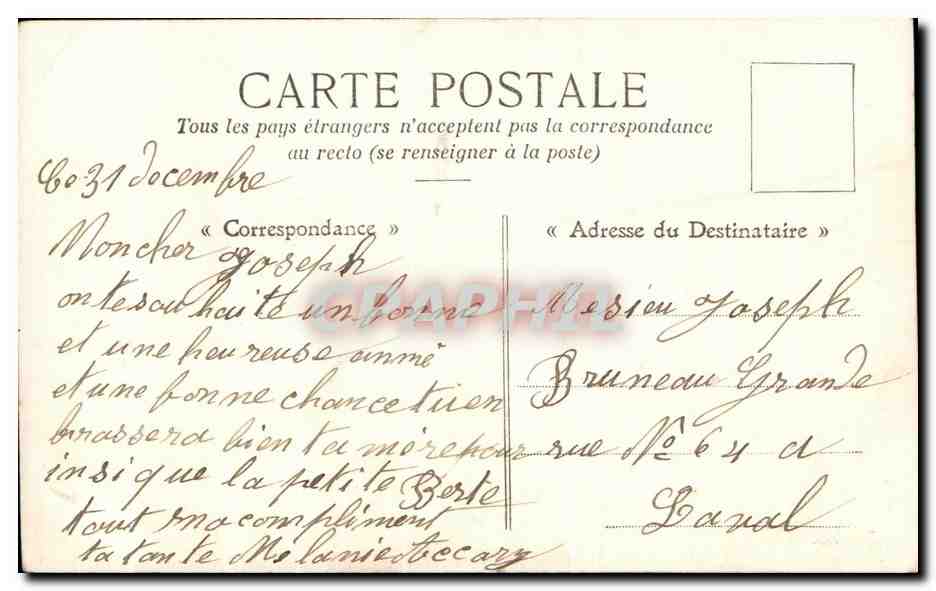 CARTE POSTALE
Tous les pays étrangers n'acceptent pas la correspondance
au recto (se renseigner à la poste)
Ce 31 decembre
« Correspondance »
Moncher Joseph
on te sou haite un bonne
et une heureuse anné
et une bonne chance tu en
brassera bien ta mére pour
insi que la petite Berte
tout mo compliment
ta tante Melanie
« Adresse du Destinataire »
Mesieu Joseph
Bruneau Grande
rue No 64 a
Laval
CPAPHIL